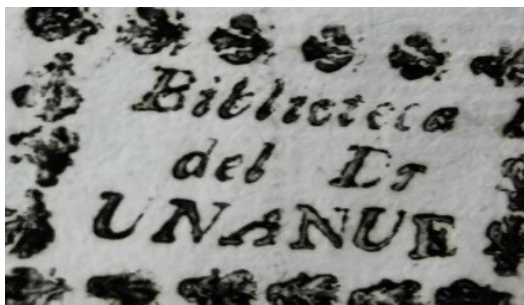 Biblioteca
del Dr
UNANUE